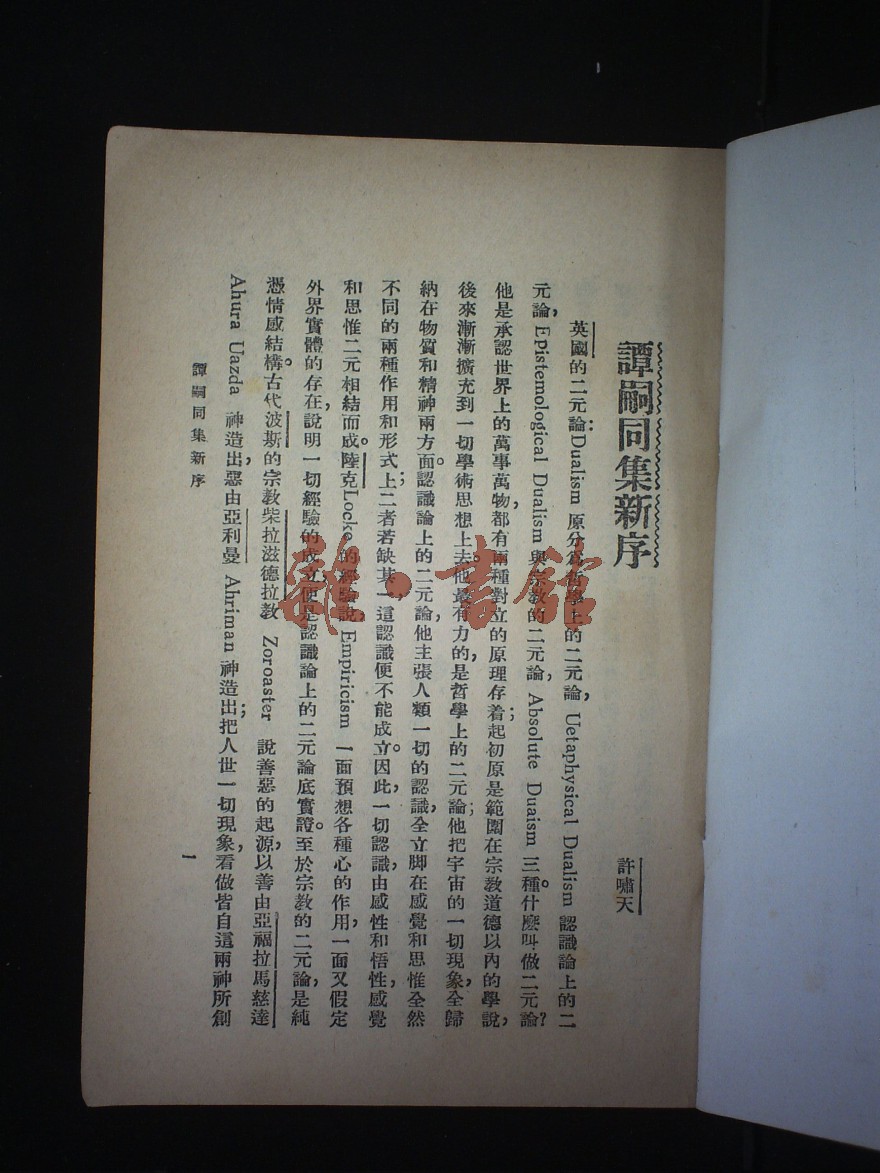 譚嗣同集新序
許嘯天
英國的二元論：Dualism 原分爲哲學上的二元論，Uetaphysical Dualism 認識論上的二
元論，Epistemological Dualism 與宗教的二元論，Absolute Duaism 三種。什麼叫做二元論？
他是承認世界上的萬事萬物，都有兩種對立的原理存着；起初原是範圍在宗教道德以內的學說，
後來漸漸擴充到一切學術思想上去他最有力的，是哲學上的二元論；他把宇宙的一切現象，全歸
納在物質和精神兩方面。認識論上的二元論，他主張人類一切的認識，全立脚在感覺和思惟全然
不同的兩種作用和形式上；二者若缺其一，這認識便不能成立。因此，一切認識，由感性和悟性，感覺
和思惟二元相結而成。陸克Locke的經驗說，Empiricism 一面預想各種心的作用，一面又假定
外界實體的存在，說明一切經驗的成立，便是認識論上的二元論底實證。至於宗教的二元論，是純
憑情感結構。古代波斯的宗教柴拉滋德拉教 Zoroaster 說善惡的起源，以善由亞福拉馬慈達
Ahura Uazda 神造出，惡由亞利曼 Ahriman 神造出；把人世一切現象，看做皆自這兩神所創
譚嗣同集新序
一
雜·書館